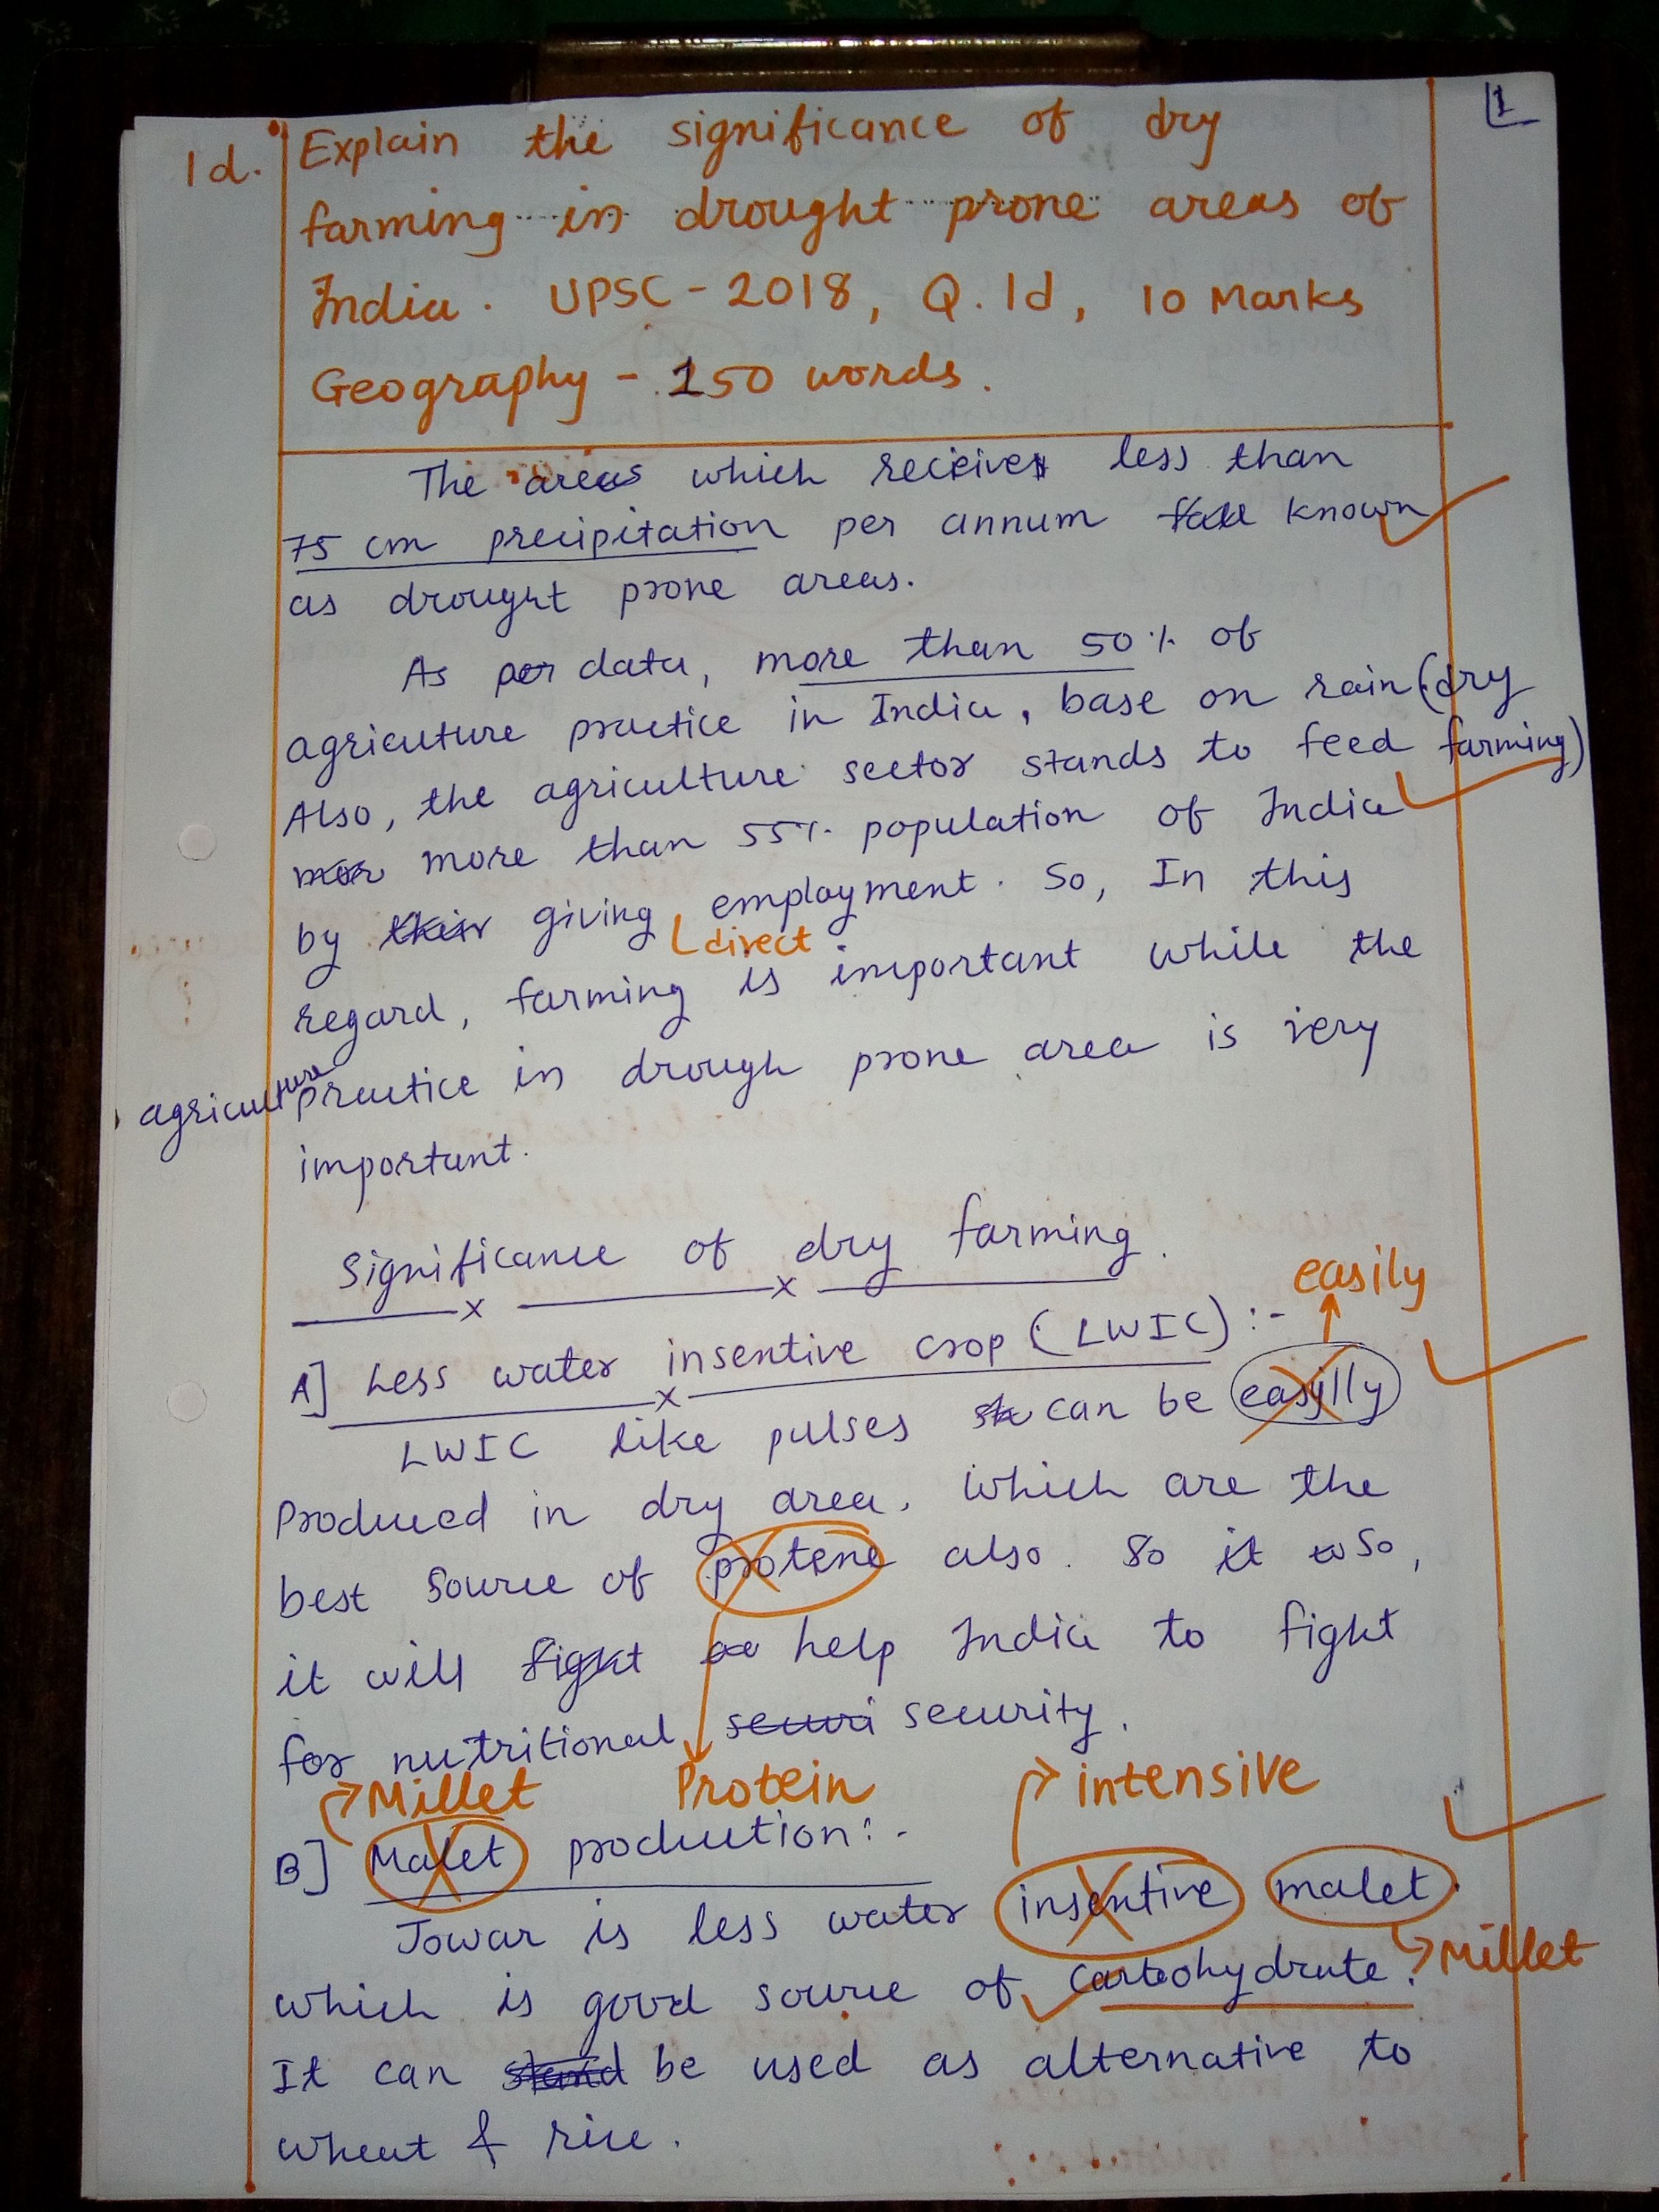 1
1d. Explain the significance of dry
farming in drought prone areas of
India. UPSC - 2018, Q.1d, 10 Marks
Geography - 150 words.
The areas which receives less than
75 cm precipitation per annum known
as drought prone areas.
As per data, more than 50% of
agricuture practice in India, base on rain (dry
farming)
Also, the agriculture sector stands to feed
more than 55% population of India
by their giving employment. So, In this
direct
regard, farming is important while the
agriculture practice in drough prone area is very
important.
Significance of dry farming.
easily
A] Less water insentive crop (LWIC) :-
LWIC like pulses can be easyilly
Produced in dry area. Which are the
best source of protene also. So it so,
it will fight help India to fight
for nutritional securi security.
Millet Protein intensive
B] Malet production :-
Jowar is less water insentive malet.
Millet
which is good source of carbohydrate.
It can stand be used as alternative to
wheat & rice.